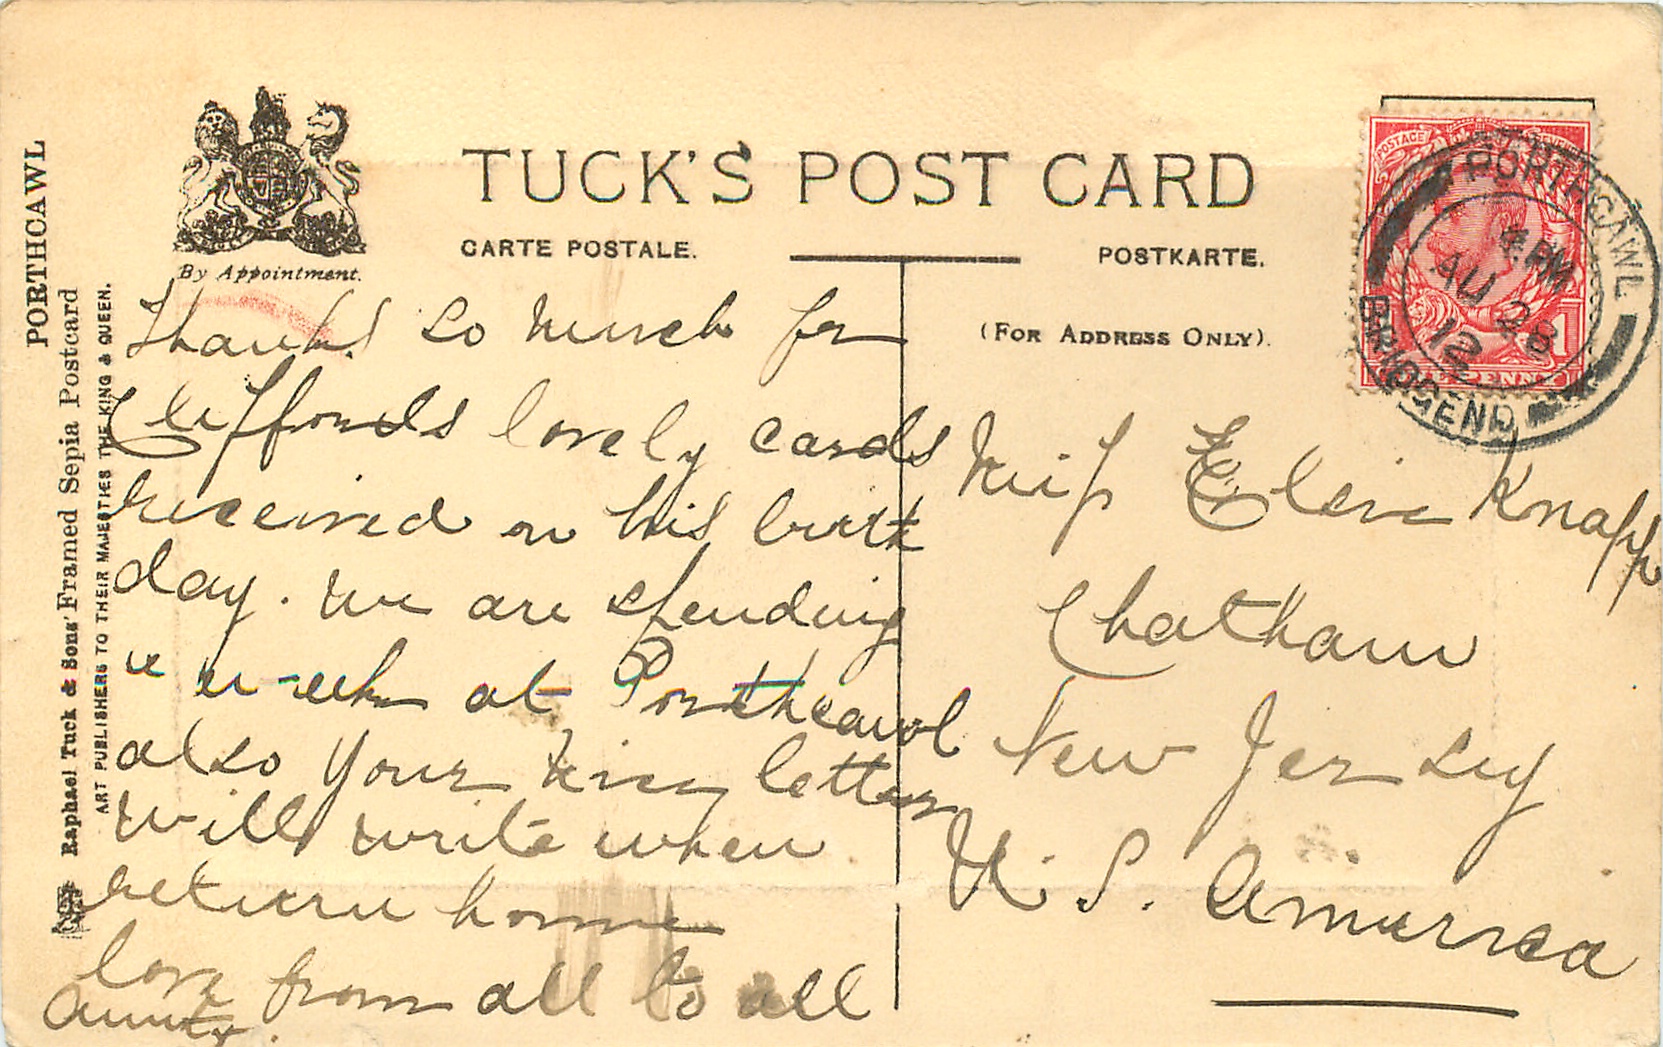 PORTHCAWL
Raphael Tuck & Sons' Framed Sepia Postcard
ART PUBLISHERS TO THEIR MAJESTIES THE KING & QUEEN.
By Appointment.
TUCK'S POST CARD
CARTE POSTALE.
POSTKARTE.
(FOR ADDRESS ONLY).
POSTAGE
PENNY
1
PORTHCAWL
4 PM
AU 28
12
BRIDGEND
Thanks so much for
Cliffords lovely cards
received on his birth
day. We are spending
a week at Porthcawl
also your nice letter
will write when
return home
love from all to all
Aunty.
Miss Knapp
Chatham
New Jersey
U. S. America